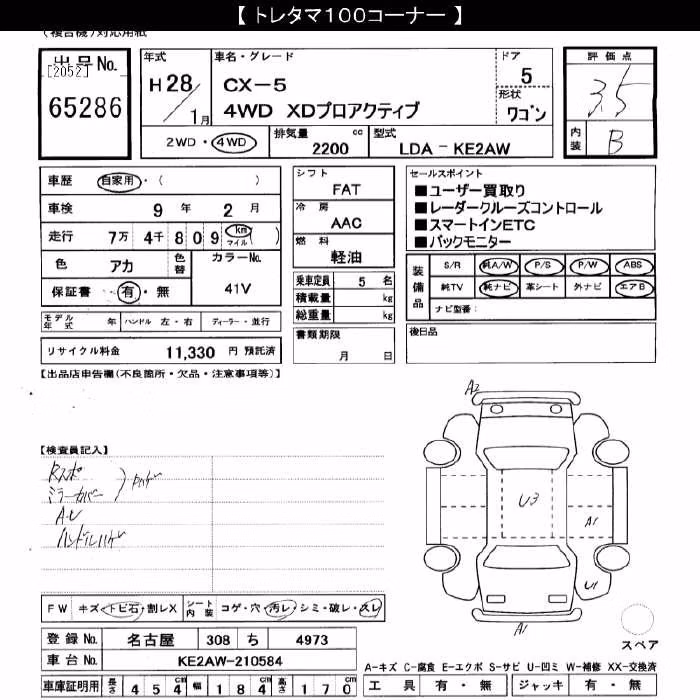 【 トレタマ100コーナー 】
(複合機)対応用紙
出品No.
[2052]
65286
年式
H28/1月
車名・グレード
CX-5
4WD XDプロアクティブ
ドア
5
形状
ワゴン
評価点
3.5
内装
B
2WD・4WD
排気量
2200 cc
型式
LDA-KE2AW
車歴 自家用・( )
車検 9年 2月
走行 7万 4千 809 km マイル ( )
色 アカ 色替
カラーNo.
41V
保証書 有・無
モデル年式 年 ハンドル 左・右 ディーラー・並行
リサイクル料金 11,330 円 預託済
シフト
FAT
冷房
AAC
燃料
軽油
乗車定員 5 名
積載量 kg
総重量 kg
書類期限
月 日
セールスポイント
■ユーザー買取り
■レーダークルーズコントロール
■スマートインETC
■バックモニター
装備品
S/R 純A/W P/S P/W ABS
純TV 純ナビ 革シート 外ナビ エアB
ナビ型番:
後日品
【出品店申告欄(不良箇所・欠品・注意事項等)】
【検査員記入】
ミラーカバー
A・U
A2
U3
A1
U1
A1
スペア
FW キズ・トビ石・割レX シート内装 コゲ・穴・汚レ・シミ・破レ・スレ
登録No. 名古屋 308 ち 4973
車台No. KE2AW-210584
車庫証明用 長さ 454cm 幅 184cm 高さ 170cm
A-キズ C-腐食 E-エクボ S-サビ U-凹ミ W-補修 XX-交換済
工具 有・無 ジャッキ 有・無